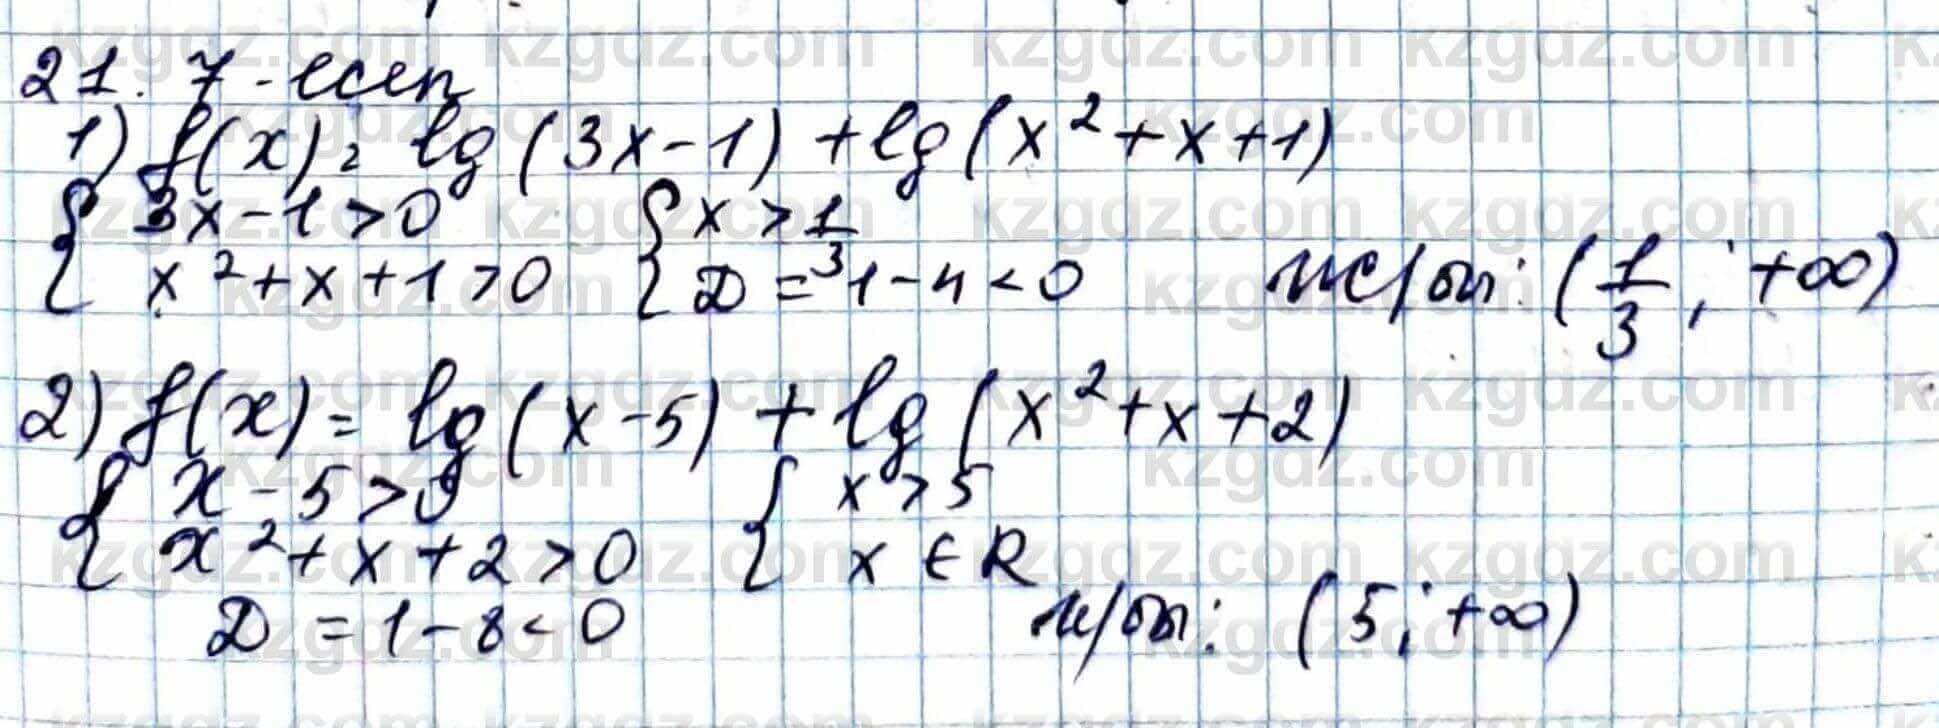 21. 7-есеп
1) f(x) = lg(3x-1) + lg(x²+x+1)
{ 3x-1>0 { x > 1/3
{ x²+x+1>0 { D = 1-4<0 ж/бы: (1/3; +∞)
2) f(x) = lg(x-5) + lg(x²+x+2)
{ x-5>0 { x>5
{ x²+x+2>0 { x ∈ R
D = 1-8<0 ж/бы: (5; +∞)
kzgdz.com